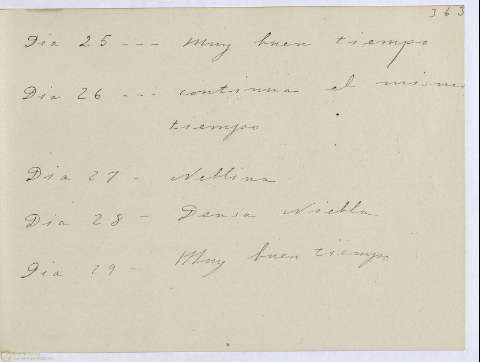 363
Dia 25 --- Muy buen tiempo
Dia 26 --- continua el mismo
tiempo
Dia 27 - Neblina
Dia 28 - Densa Niebla
Dia 29 - Muy buen tiempo